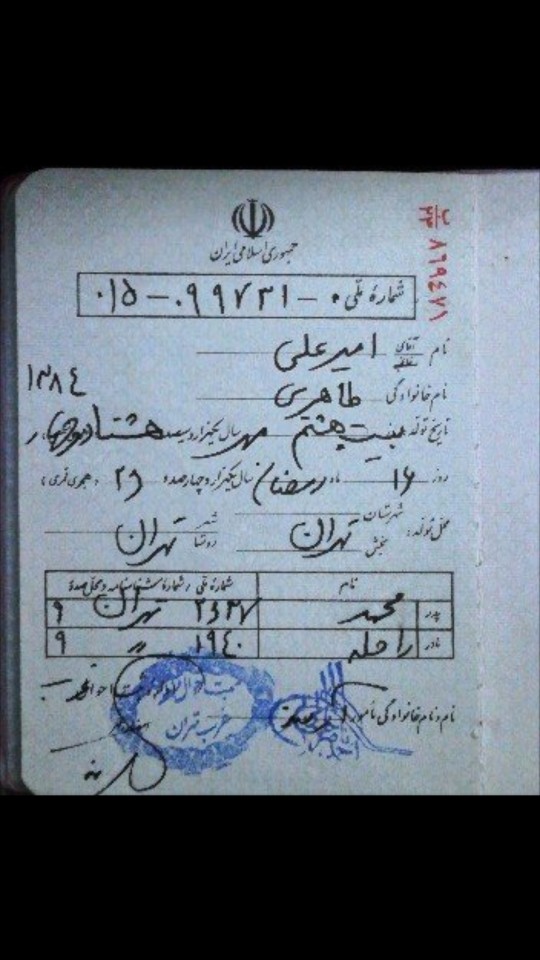 جمهوری اسلامی ایران
ب
۳۳ ۸۶۹۴۷۱
شمارهٔ ملّی ۰ - ۰۹۹۷۳۱ - ۰۱۵
نام آقای امیرعلی
۱۳۸۴
نام خانوادگی طاهری
تاریخ تولد: بیست و هشتم مهر سال یکهزار و سیصد و هشتاد و چهار
روز ۱۶ ماه رمضان سال یکهزار و چهارصد و ۲۶ (هجری قمری)
محل تولد: شهرستان بخش تهران شهر روستا تهران
نام شماره ملی / شماره شناسنامه و محل صدور
پدر محمد ۲۶۳۷ تهران ۹
مادر راحله ۱۹۴۰ " ۹
نام و نام خانوادگی مأمور
ثبت احوال
غرب تهران